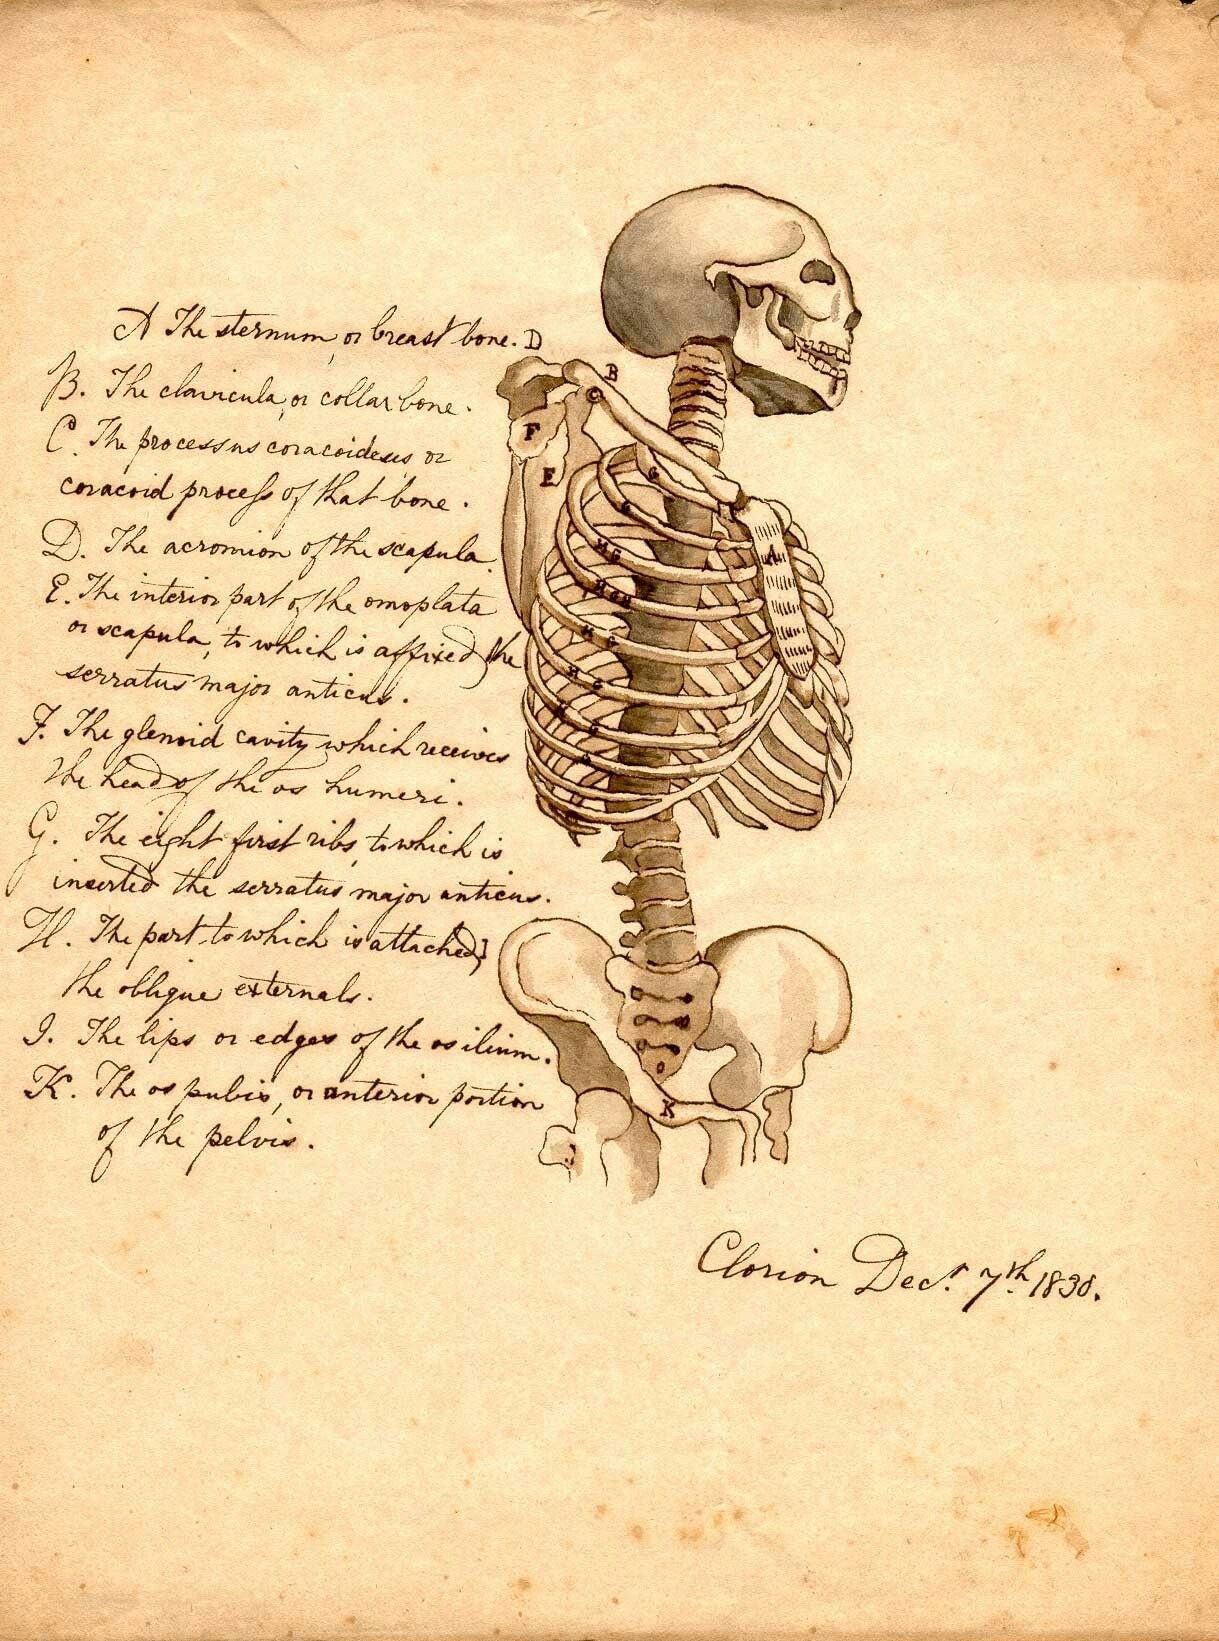 A The sternum, or breast bone.
B. The clavicula, or collar bone.
C. The processus coracoideus or
coracoid process of that bone.
D. The acromion of the scapula.
E. The interior part of the omoplata
or scapula, to which is affixed the
serratus major anticus.
F. The glenoid cavity which receives
the head of the os humeri.
G. The eight first ribs, to which is
inserted the serratus major anticus.
H. The part to which is attached
the oblique externals.
I. The lips or edges of the os ilium.
K. The os pubis, or anterior portion
of the pelvis.
D
B
C
F
E
G
A
H G
H G
H G
K
Dec.r 7th. 1830.